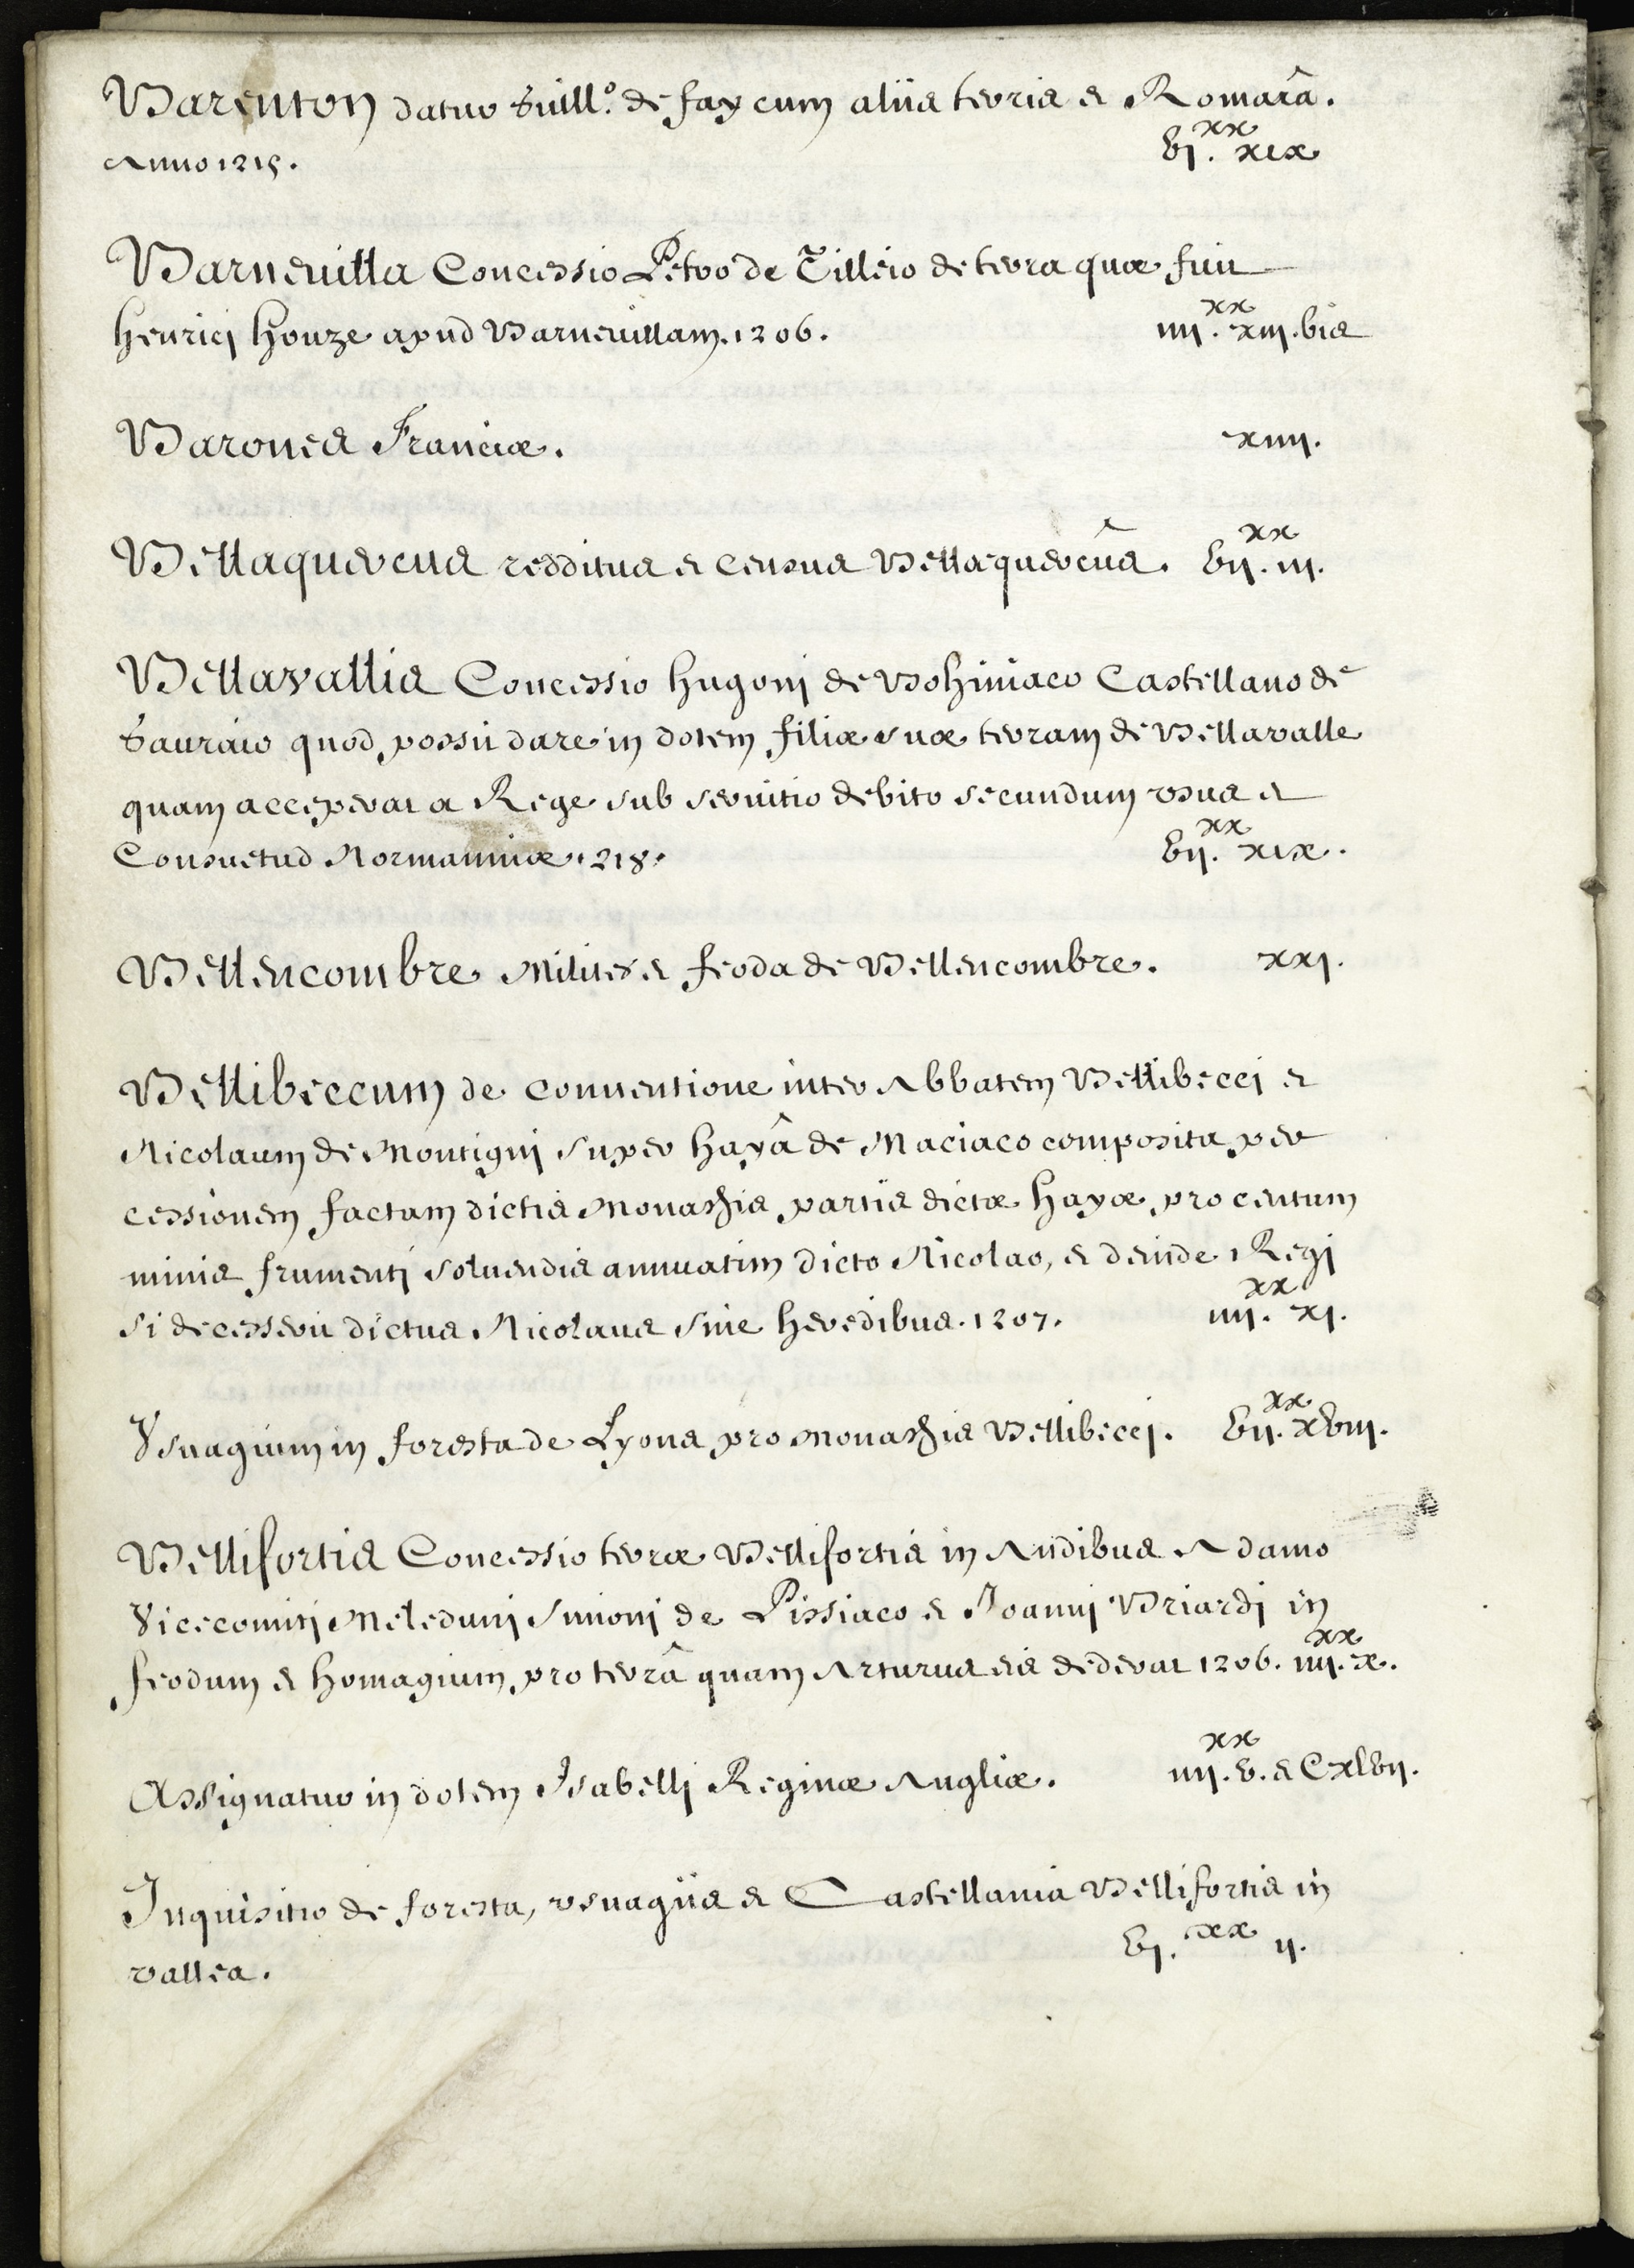 Barenton datur Guill.º de fay cum aliis terris et Romarâ.
Anno 1215. vj.xx xix
Barnevilla Concessio Petro de Tilleio de terra quæ fuit
henrici houze apud Barnevillam. 1206. iiij.xx xiij. bis
Barones Franciæ. xiiij.
Bellaquercus redditus et census Bellæquercûs. vij.xx iij.
Bellavallis Concessio hugoni de Bohiniaco Castellano de
Gauraio quod possit dare in dotem filiæ suæ terram de Bellavalle
quam acceperat a Rege sub servitio debito secundum usus et
Consuetud Normanniæ 1218. vij.xx xix.
Bellencombre Milites et feoda de Bellencombre. xxj.
Bellibeccum de conventione inter Abbatem Bellibecci et
Nicolaum de Montigni super hayâ de Maciaco composita per
cessionem factam dictis Monachis partis dictæ hayæ pro centum
minis frumenti solvendis annuatim dicto Nicolao, et deinde Regi
si decesserit dictus Nicolaus sine heredibus. 1207. iiij.xx xj.
Usuagium in foresta de Lyons pro Monachis Bellibecci. vij.xx xviij.
Bellifortis Concessio terræ Bellifortis in Andibus Adamo
Vicecomiti Meleduni Simoni de Pissiaco et Joanni Briardi in
feodum et homagium pro terrâ quam Arturus eis dederat 1206. iiij.xx x.
Assignatur in dotem Isabelli Reginæ Angliæ. iiij.xx v. et Cxlvij.
Inquisitio de foresta, usuagiis et Castellania Bellifortis in
valles. vj.xx ij.